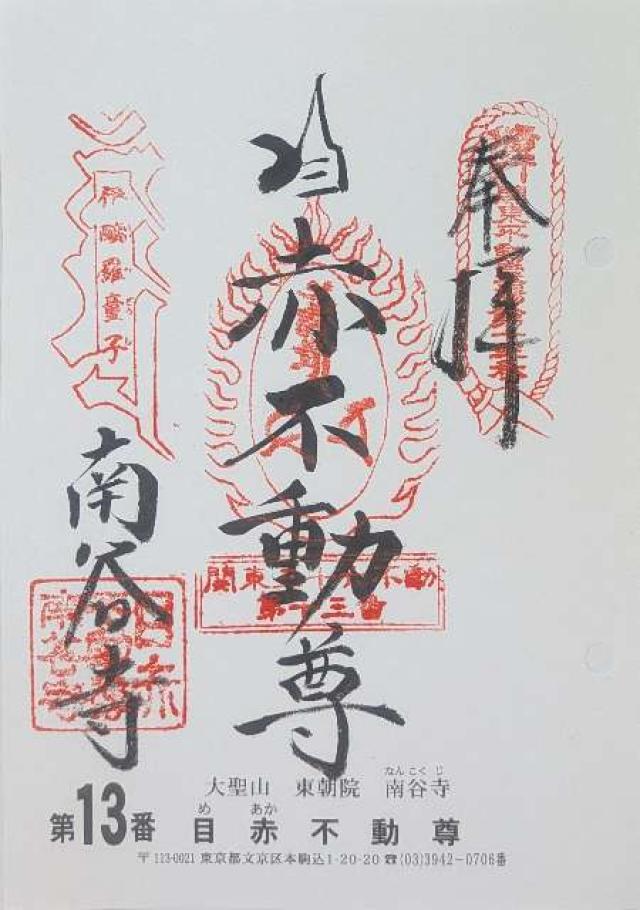 奉拝
目赤不動尊
伊醯羅童子
南谷寺
第十三番
大聖山　東朝院　南谷寺
なんこくじ
第13番 目赤不動尊
め あか
〒113-0021 東京都文京区本駒込1-20-20 ☎(03)3942-0706番